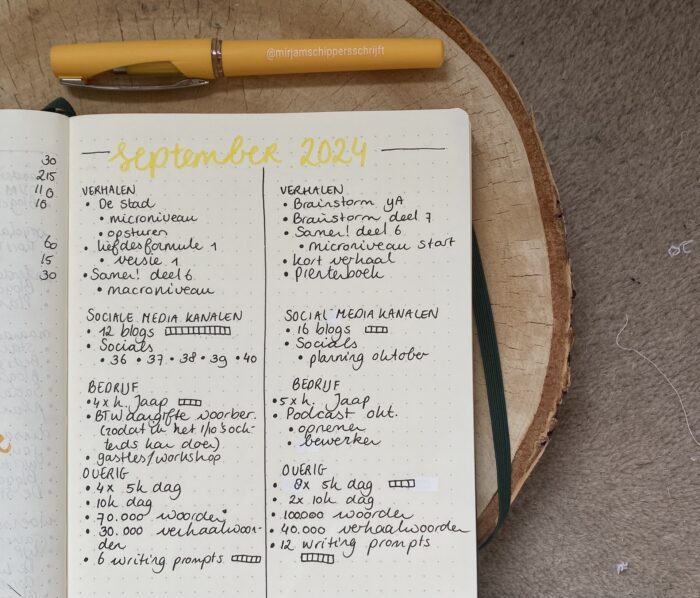 @mirjamschippersschrijft
september 2024
30
215
110
10
60
15
30
VERHALEN
• De stad
• microniveau
• opsturen
• liefdesformule 1
• versie 1
• Samen! deel 6
• macroniveau
SOCIALE MEDIA KANALEN
• 12 blogs
• Socials
• 36 • 37 • 38 • 39 • 40
BEDRIJF
• 4x h. Jaap
• BTW aangifte voorber.
(zodat ik het 1/10 's och-
tends kan doen)
• gastles/workshop
OVERIG
• 4x 5k dag
• 10k dag
• 70.000 woorden
• 30.000 verhaalwoor-
den
• 6 writing prompts
VERHALEN
• Brainstorm YA
• Brainstorm deel 7
• Samen! deel 6
• microniveau start
• Kort verhaal
• Prentenboek
SOCIAL MEDIA KANALEN
• 16 blogs
• Socials
• planning oktober
BEDRIJF
• 5x h. Jaap
• Podcast okt.
• opnemen
• bewerken
OVERIG
• 8x 5k dag
• 2x 10k dag
• 100000 woorden
• 40.000 verhaalwoorden
• 12 writing prompts